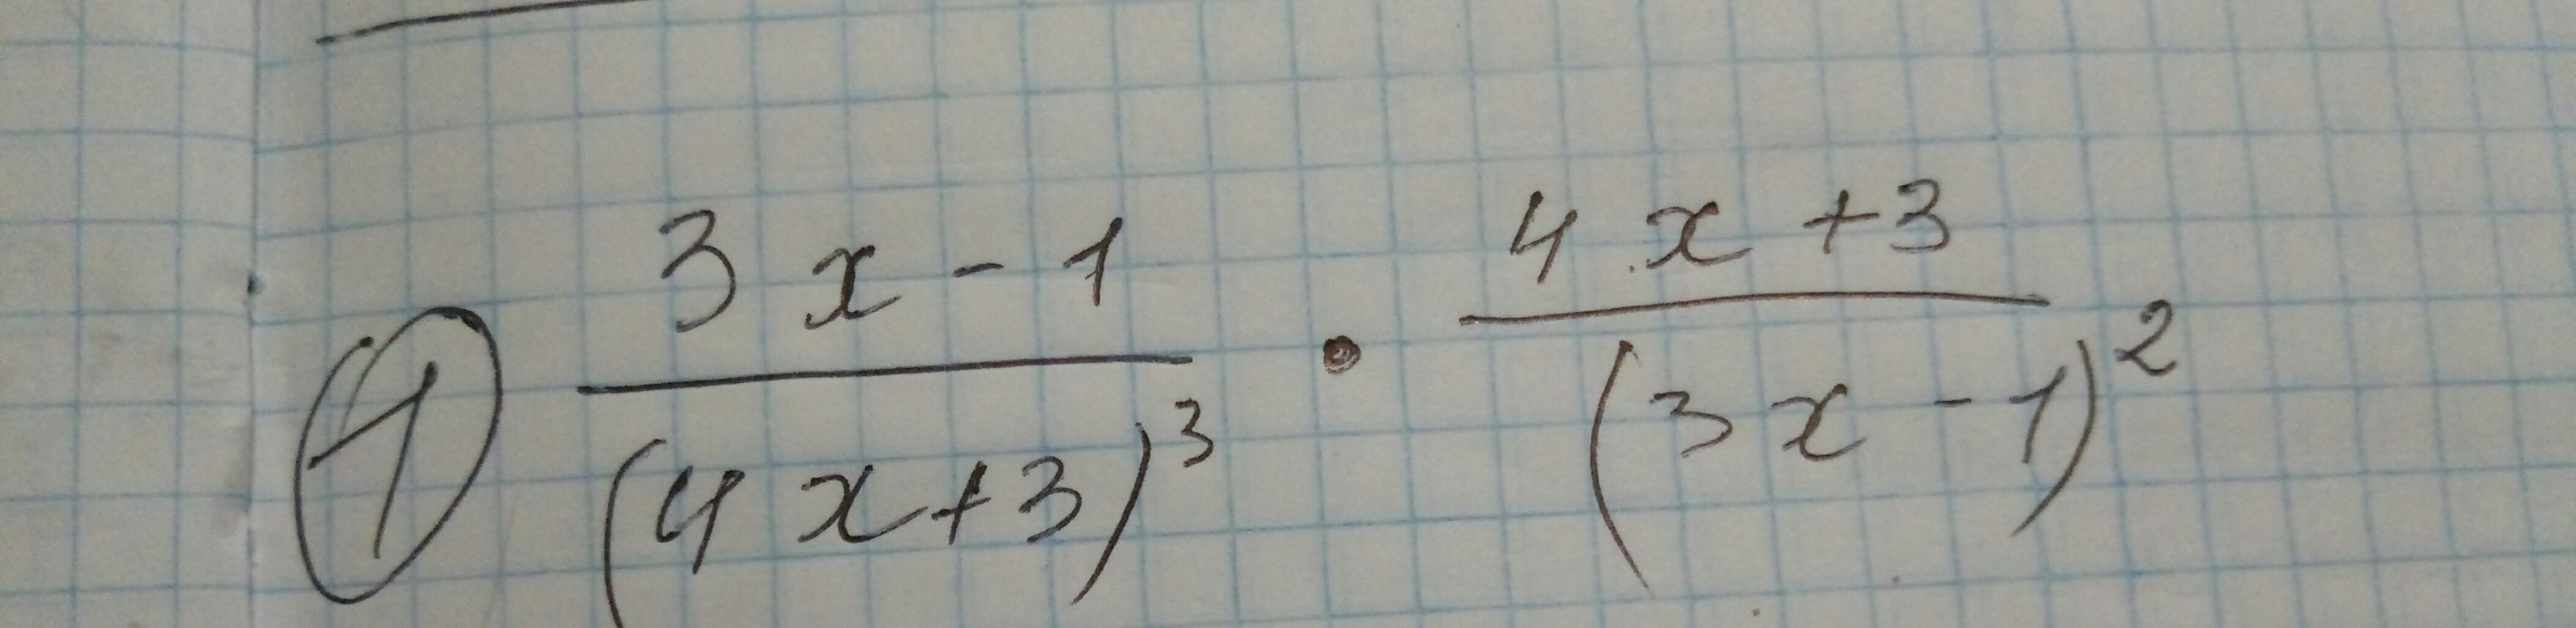 ① \frac{3x-1}{(4x+3)^3} \cdot \frac{4x+3}{(3x-1)^2}